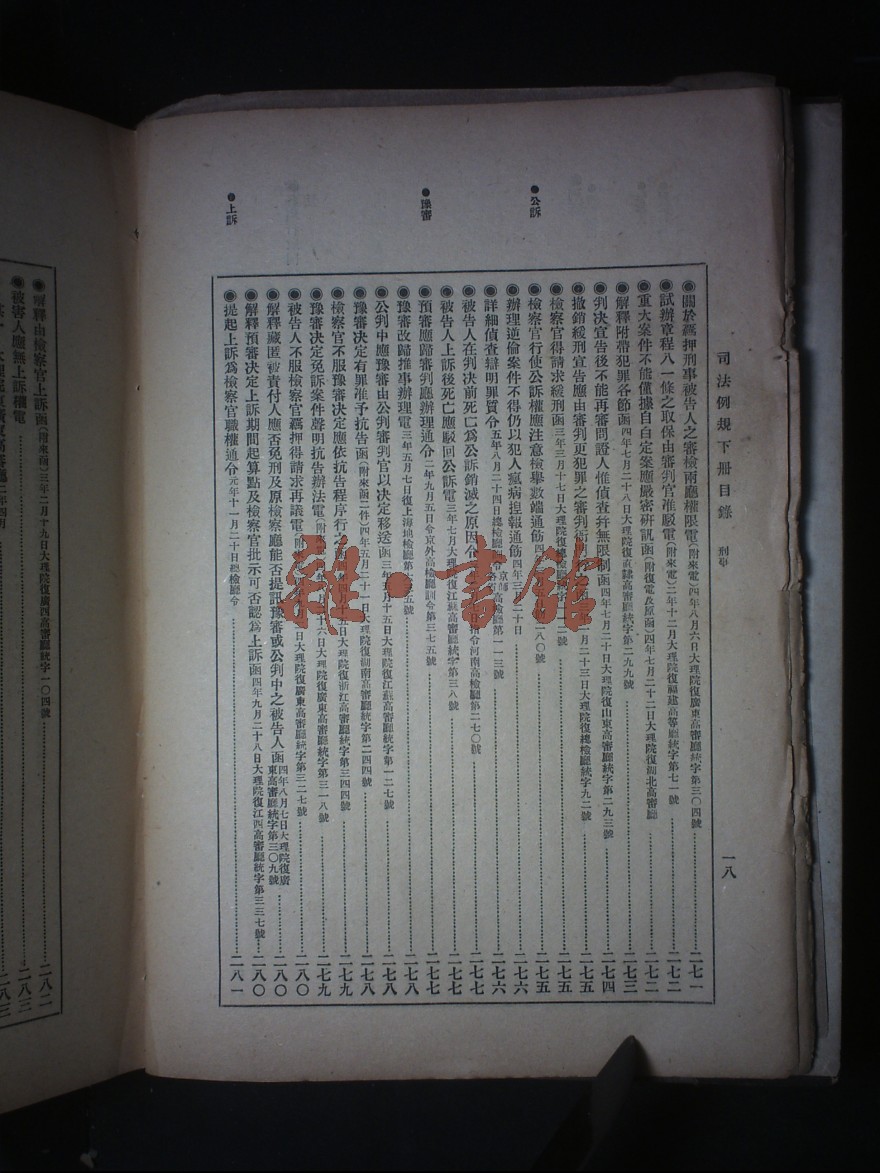 司法例規下冊目錄 刑事
一八
●公訴
●豫審
●上訴
◉關於羈押刑事被告人之審檢兩廳權限電(附來電)四年八月六日大理院復廣東高審廳統字第三〇四號 二七一
◉試辦章程八一條之取保由審判官准駁電(附來電)二年十二月大理院復福建高等廳統字第七一號 二七二
◉重大案件不能僅據自白定案應嚴密研訊函(附復電及原函)四年七月二十二日大理院復湖北高審廳 二七二
◉解釋附帶犯罪各節函四年七月二十八日大理院復直隸高審廳統字第二九九號 二七三
◉判決宣告後不能再審問證人惟偵查幷無限制函四年七月二十日大理院復山東高審廳統字第二九三號 二七四
◉撤銷緩刑宣告應由審判更犯罪之審判衙 月二十三日大理院復總檢廳統字九二號 二七五
◉檢察官得請求緩刑函三年三月十七日大理院復總檢廳 二號 二七五
◉檢察官行使公訴權應注意檢舉數端通飭四 八〇號 二七五
◉辦理逆倫案件不得仍以犯人瘋病揑報通飭四年三 二十日 二七六
◉詳細偵查辯明罪質令五年八月二十四日總檢廳令京師高檢廳第一一三號 二七六
◉被告人在判決前死亡爲公訴銷滅之原因令 指令河南高檢廳第二七〇號 二七七
◉被告人上訴後死亡應駁回公訴電三年七月大理院復江蘇高審廳統字第三八號 二七七
◉預審應歸審判廳辦理通令二年九月五日令京外高檢廳訓令第三七五號 二七七
◉豫審改歸推事辦理電三年五月七日復上海地檢廳第 五號 二七八
◉公判中應豫審由公判審判官以決定移送函三年五月十五日大理院復江蘇高審廳統字第一二七號 二七八
◉豫審決定有罪准予抗告函(附來函二件)四年五月二十一日大理院復湖南高審廳統字第二四四號 二七八
◉檢察官不服豫審決定應依抗告程序行之函 十五日大理院復浙江高審廳統字第三四四號 二七九
◉豫審決定免訴案件聲明抗告辦法電(附 十六日大理院復廣東高審廳統字第三一八號 二七九
◉被告人不服檢察官羈押得請求再議電(附 日大理院復廣東高審廳統字第三二七號 二八〇
◉解釋藏匿被責付人應否免刑及原檢察廳能否提訊豫審或公判中之被告人函四年八月七日大理院復廣東高審廳統字第三〇九號 二八〇
◉解釋預審決定上訴期間起算點及檢察官批示可否認爲上訴函四年九月二十八日大理院復江西高審廳統字第三三七號 二八〇
◉提起上訴爲檢察官職權通令元年十一月二十日總檢廳令 二八一
◉解釋由檢察官上訴函(附來函)三年二月十九日大理院復廣西高審廳統字一〇四號 二八二
◉被害人應無上訴權電 二八三
雅·書館